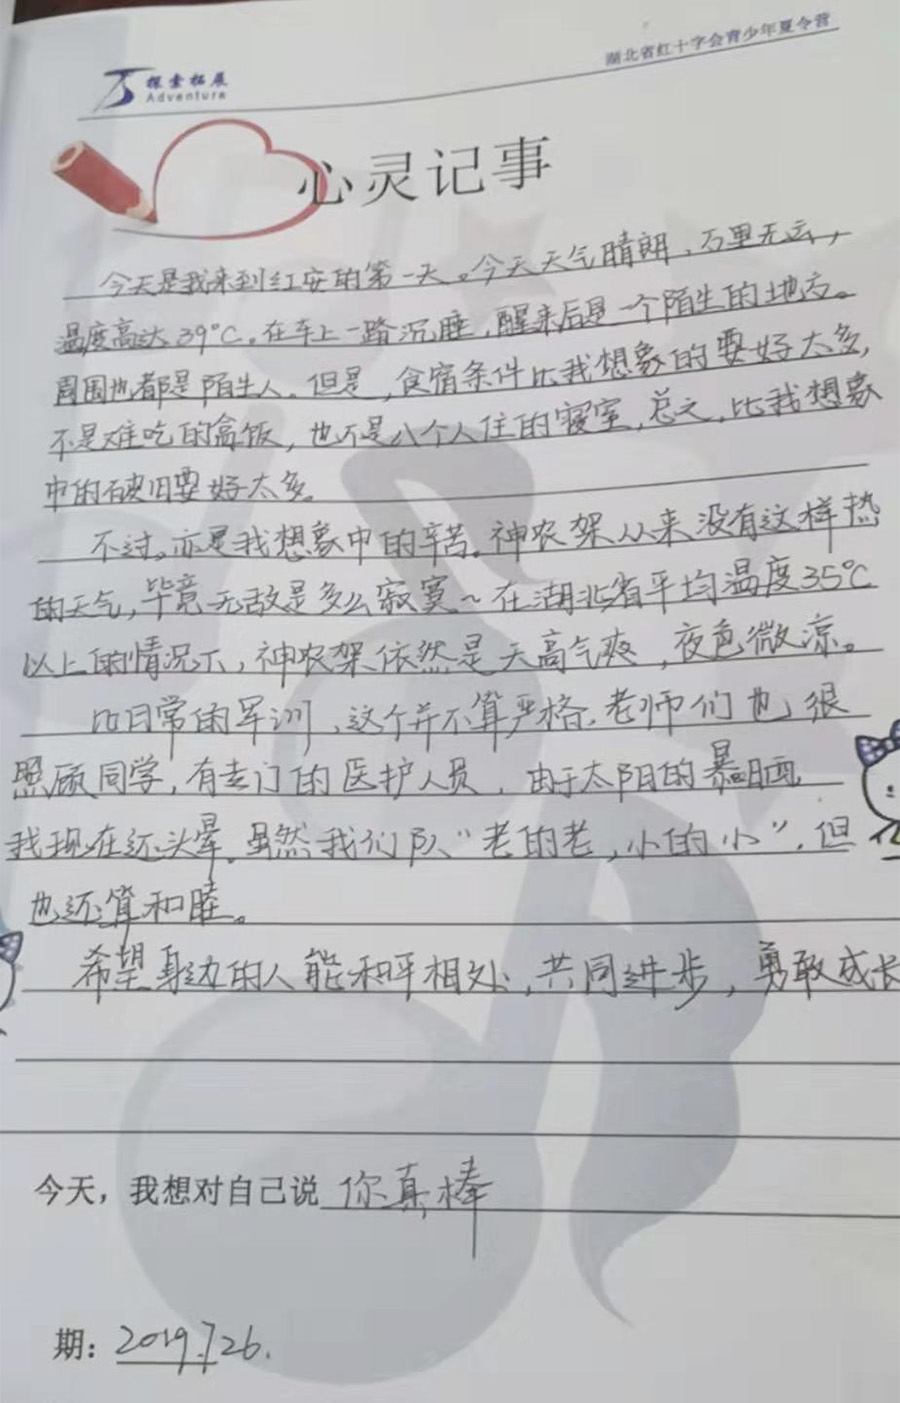 湖北省红十字会青少年夏令营
探索拓展
Adventure
心灵记事
今天是我来到红安的第一天。今天天气晴朗，万里无云，
温度高达39°C。在车上一路沉睡，醒来后是一个陌生的地方。
周围也都是陌生人。但是，食宿条件比我想象的要好太多，
不是难吃的盒饭，也不是八个人住的寝室，总之，比我想象
中的破旧要好太多。
不过。亦是我想象中的辛苦。神农架从来没有这样热
的天气，毕竟无敌是多么寂寞~在湖北省平均温度35°C
以上的情况下，神农架依然是天高气爽，夜色微凉。
比日常的军训，这个并不算严格。老师们也很
照顾同学，有专门的医护人员，由于太阳的暴晒
我现在还头晕。虽然我们队“老的老，小的小”，但
也还算和睦。
希望身边的人能和平相处，共同进步，勇敢成长
今天，我想对自己说 你真棒
期：2019.7.26.